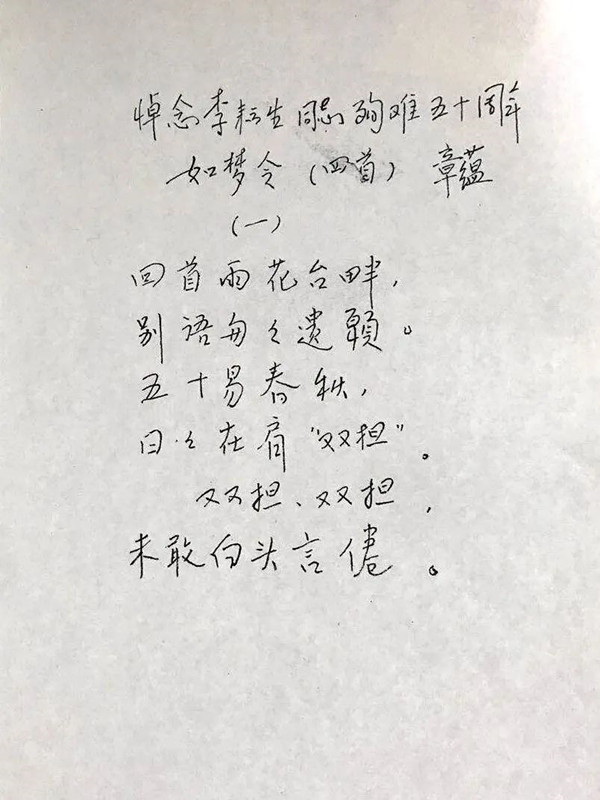 悼念李耘生同志殉难五十周年
如梦令（四首） 章蕴
（一）
回首雨花台畔，
别语匆々遗願。
五十易春秋，
日々在肩“双担”。
双双担、双双担，
未敢白头言倦。